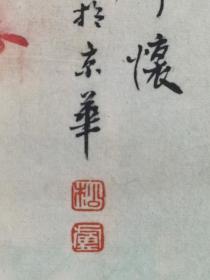 懷
於京華
松